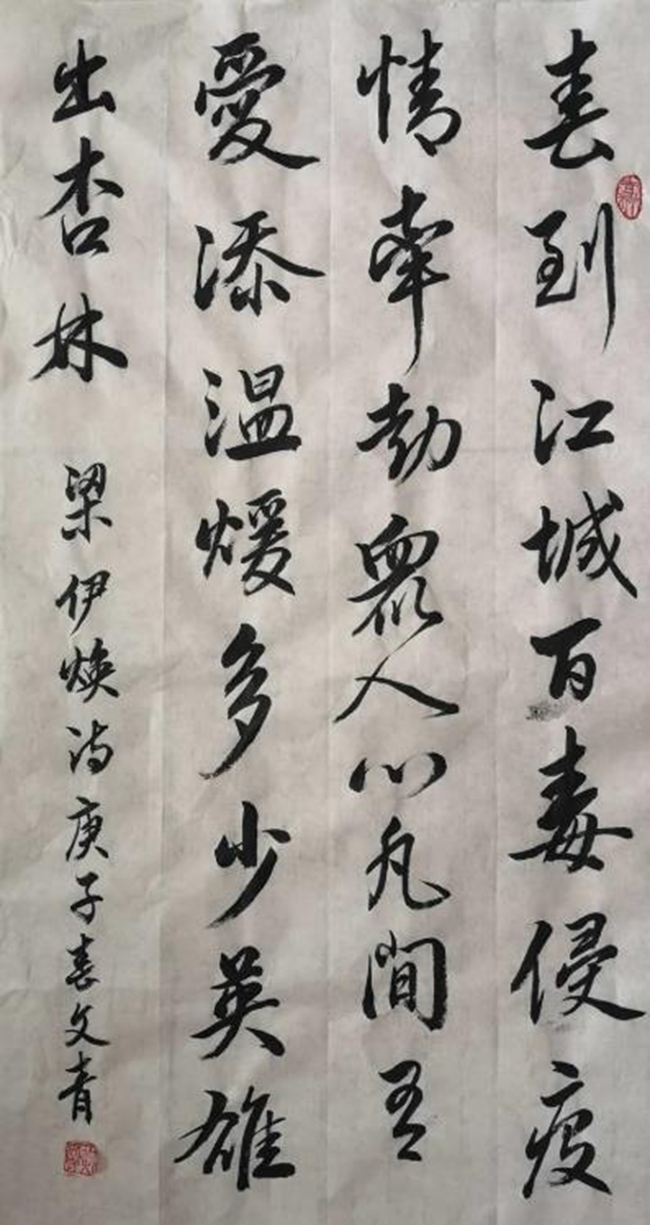 春到江城百毒侵疫
情牵劫众人心凡間有
愛添温煖多少英雄
出杏林
梁伊焕诗庚子春文青